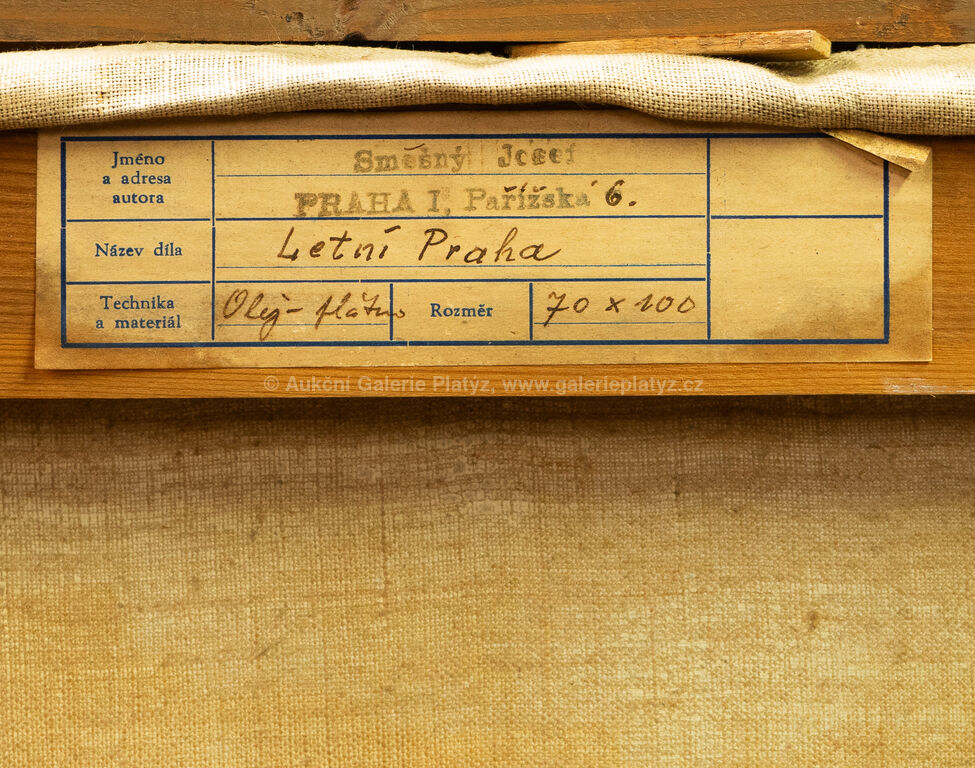 Jméno
a adresa
autora
Směšný Josef
PRAHA I, Pařížská 6.
Název díla
Letní Praha
Technika
a materiál
Olej - plátno
Rozměr
70 x 100
© Aukční Galerie Platýz, www.galerieplatyz.cz